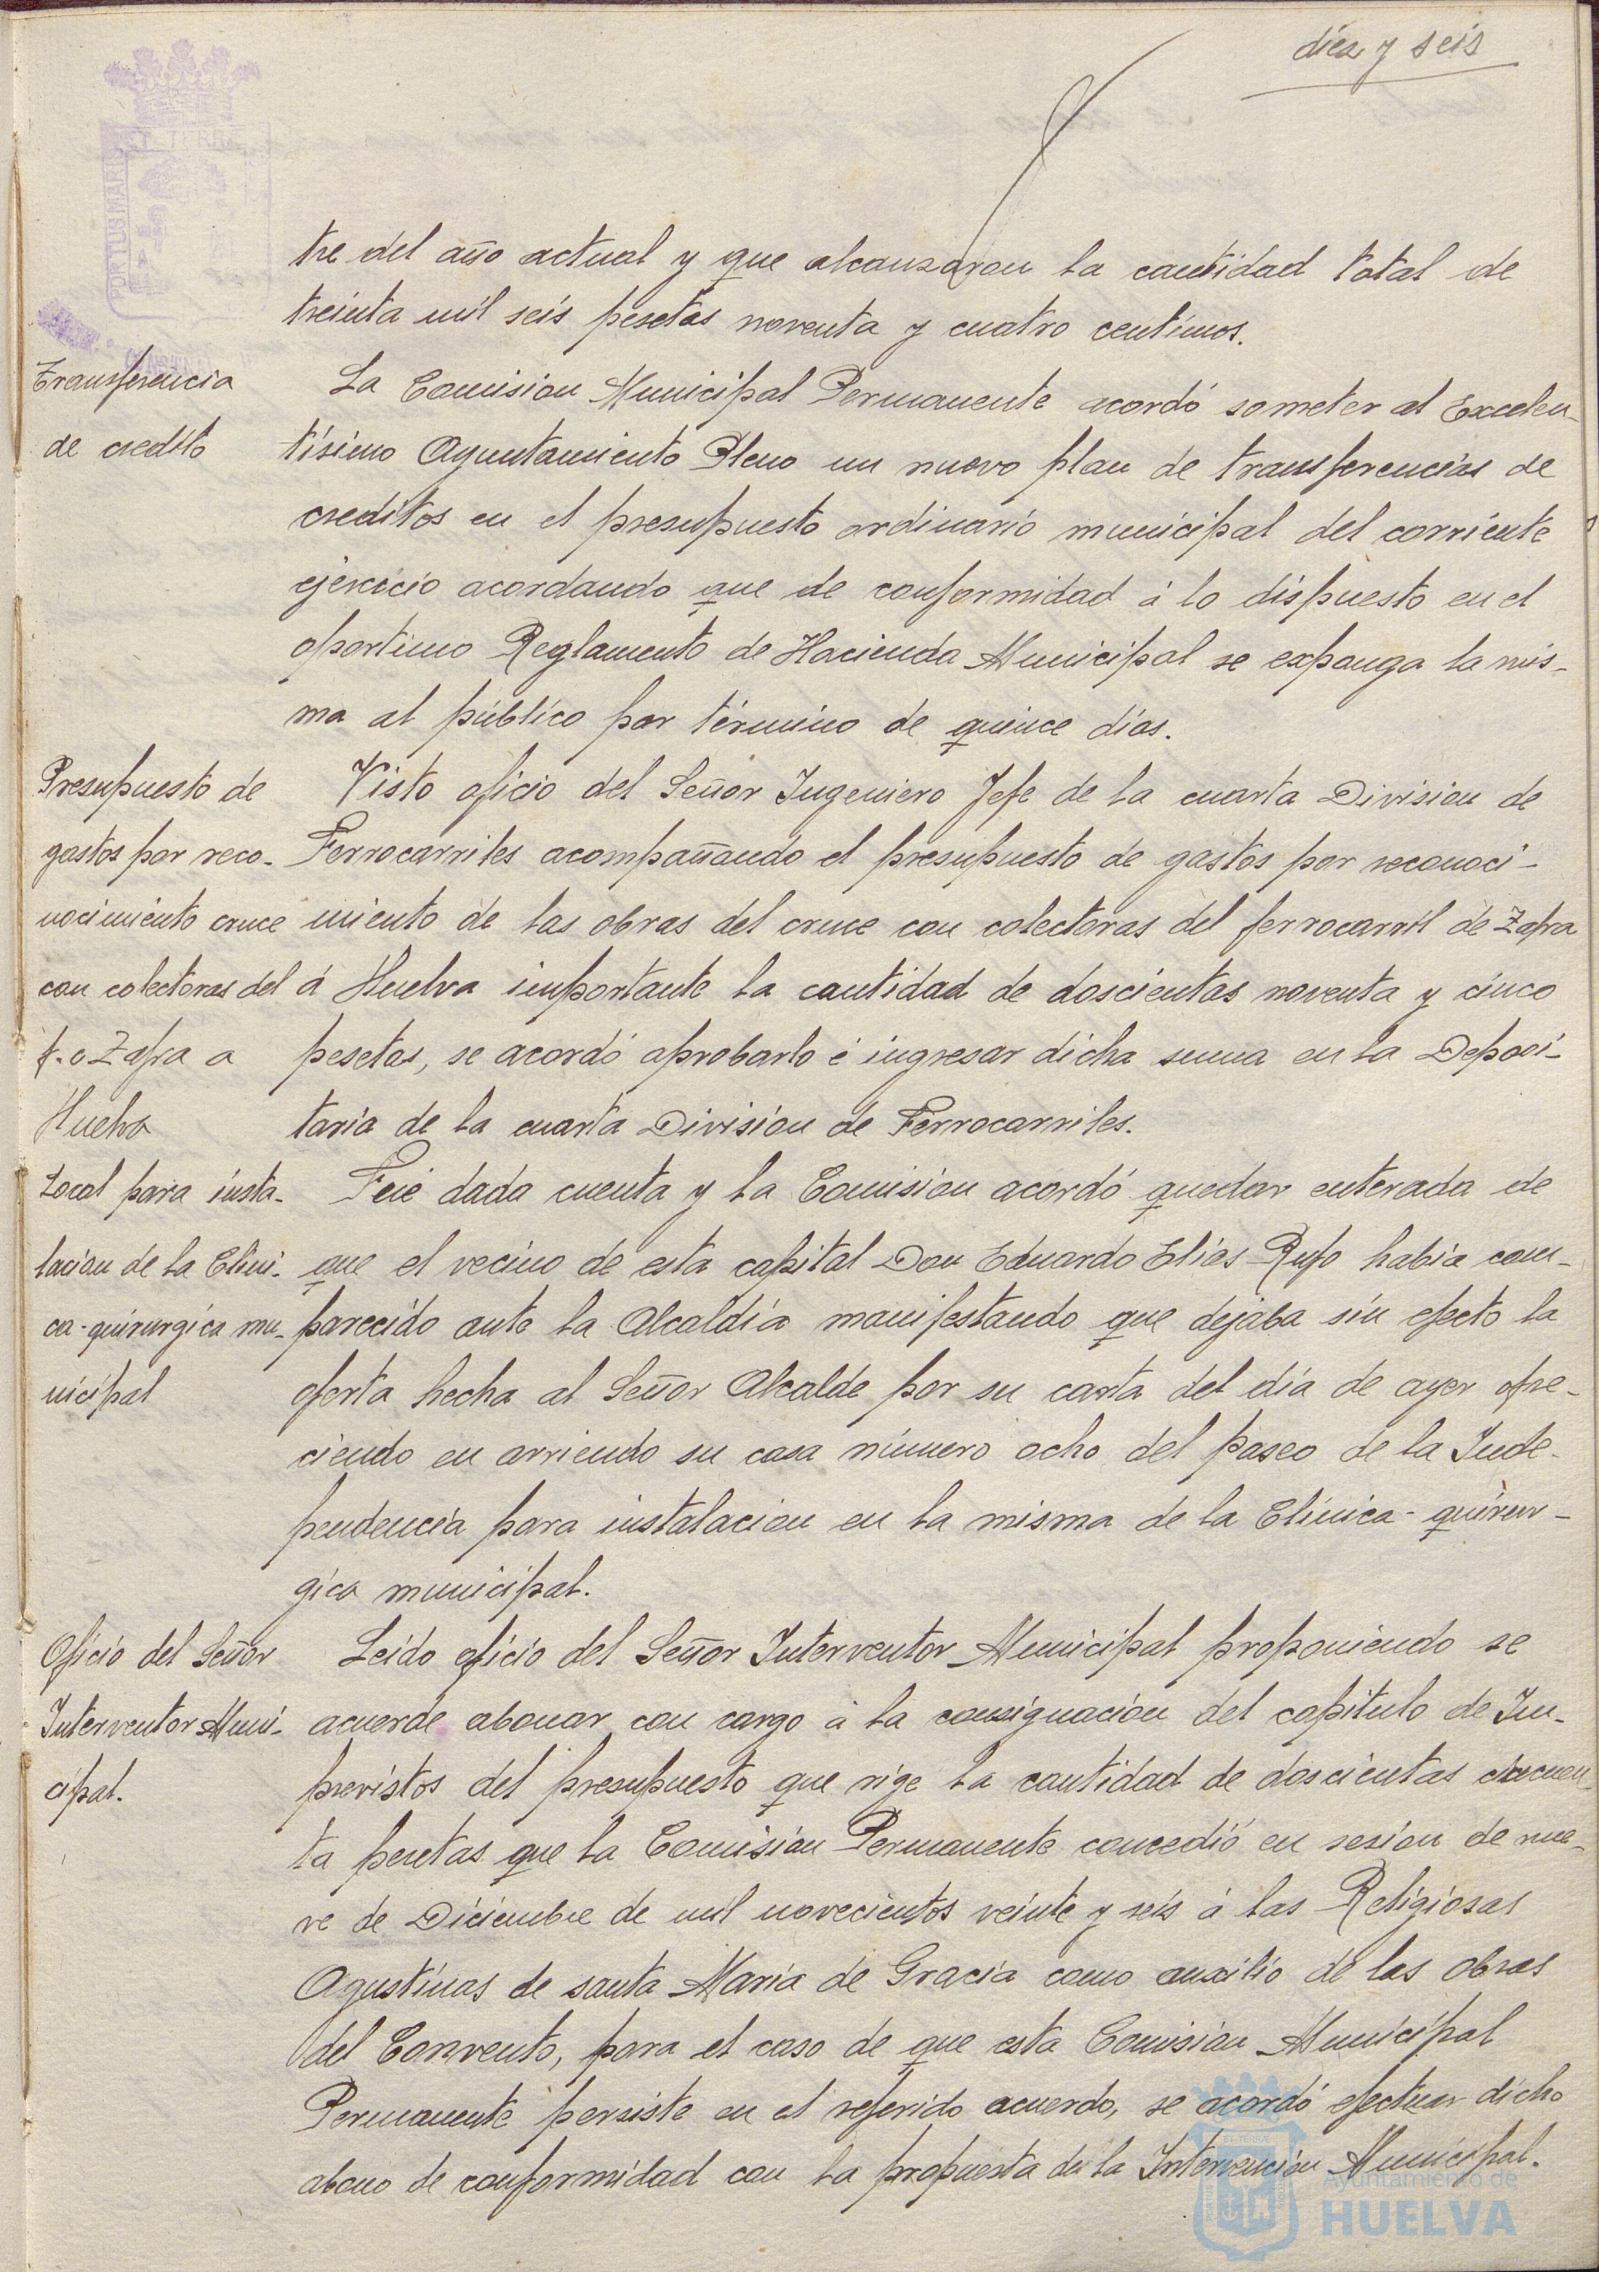 diez y seis
tre del año actual y que alcanzaron la cantidad total de
treinta mil seis pesetas noventa y cuatro centimos.
Transferencia
de credito
La Comision Municipal Permanente acordó someter al Excelen-
tísimo Ayuntamiento Pleno un nuevo plan de transferencias de
creditos en el presupuesto ordinario municipal del corriente
ejercicio acordando que de conformidad á lo dispuesto en el
oportuno Reglamento de Hacienda Municipal se exponga la mis-
ma al público por término de quince días.
Presupuesto de
gastos por reco-
nocimiento cruce
con colectoras del
f. c Zafra a
Huelva
Visto oficio del Señor Ingeniero Jefe de la cuarta Division de
Ferrocarriles acompañando el presupuesto de gastos por reconoci-
miento de las obras del cruce con colectoras del ferrocarril de Zafra
á Huelva importante la cantidad de doscientas noventa y cinco
pesetas, se acordó aprobarlo é ingresar dicha suma en la Deposi-
taria de la cuarta Division de Ferrocarriles.
Local para insta-
lacion de la Clini-
ca-quirurgica mu-
nicipal
Fué dada cuenta y la Comision acordó quedar enterada de
que el vecino de esta capital Don Eduardo Elías Rufo había com-
parecido ante la Alcaldía manifestando que dejaba sin efecto la
oferta hecha al Señor Alcalde por su carta del día de ayer ofre-
ciendo en arriendo su casa número ocho del paseo de la Inde-
pendencia para instalacion en la misma de la Clínica-quirúr-
gica municipal.
Oficio del Señor
Interventor Muni-
cipal.
Leído oficio del Señor Interventor Municipal proponiendo se
acuerde abonar con cargo á la consignación del capitulo de Im-
previstos del presupuesto que rige la cantidad de doscientas cincuen-
ta pesetas que la Comision Permanente concedió en sesion de nue-
ve de Diciembre de mil novecientos veinte y seis á las Religiosas
Agustinas de santa María de Gracia como auxilio de las obras
del Convento, para el caso de que esta Comision Municipal
Permanente persiste en el referido acuerdo, se acordó efectuar dicho
abono de conformidad con la propuesta de la Intervención Municipal.
Ayuntamiento de
HUELVA